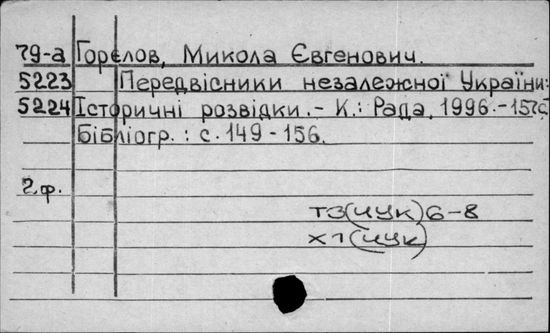 79-а Горєлов, Микола Євгенович.
5223 Передвісники незалежної України:
5224 Історичні розвідки.- К.: Рада, 1996.-157с.
Бібліогр.: с.149-156.
2ф.
т3(ЧУК)6-8
х1(ЧУК)